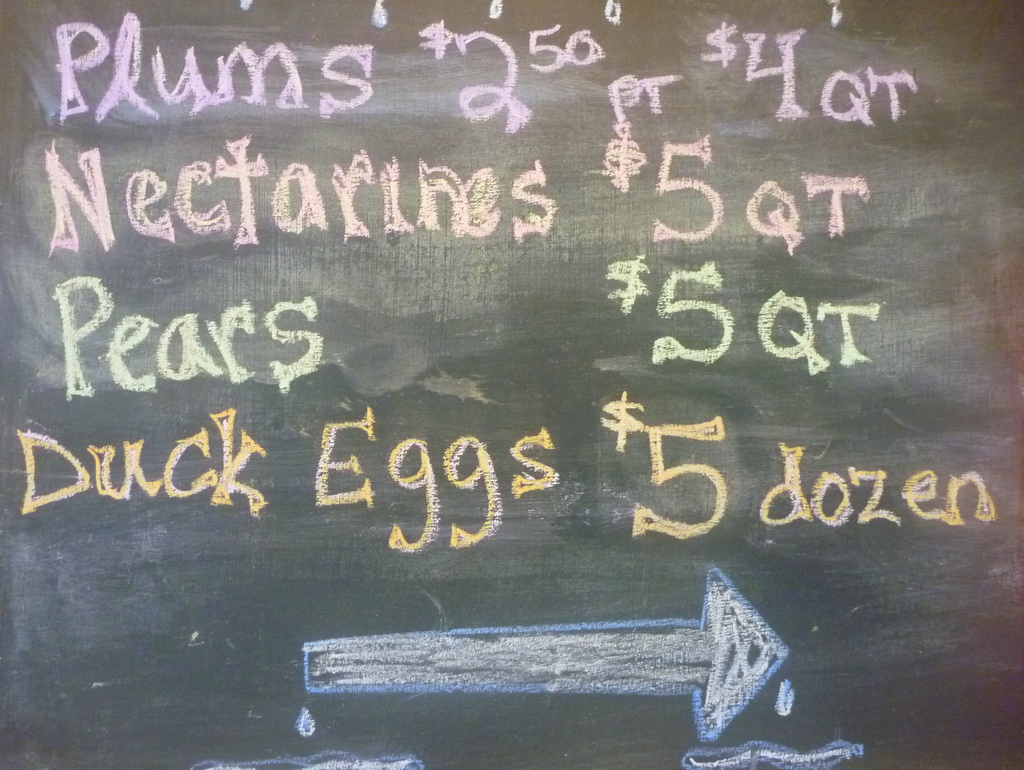 Plums $2 50 PT $4 QT
Nectarines $5 QT
Pears $5 QT
Duck Eggs $5 dozen